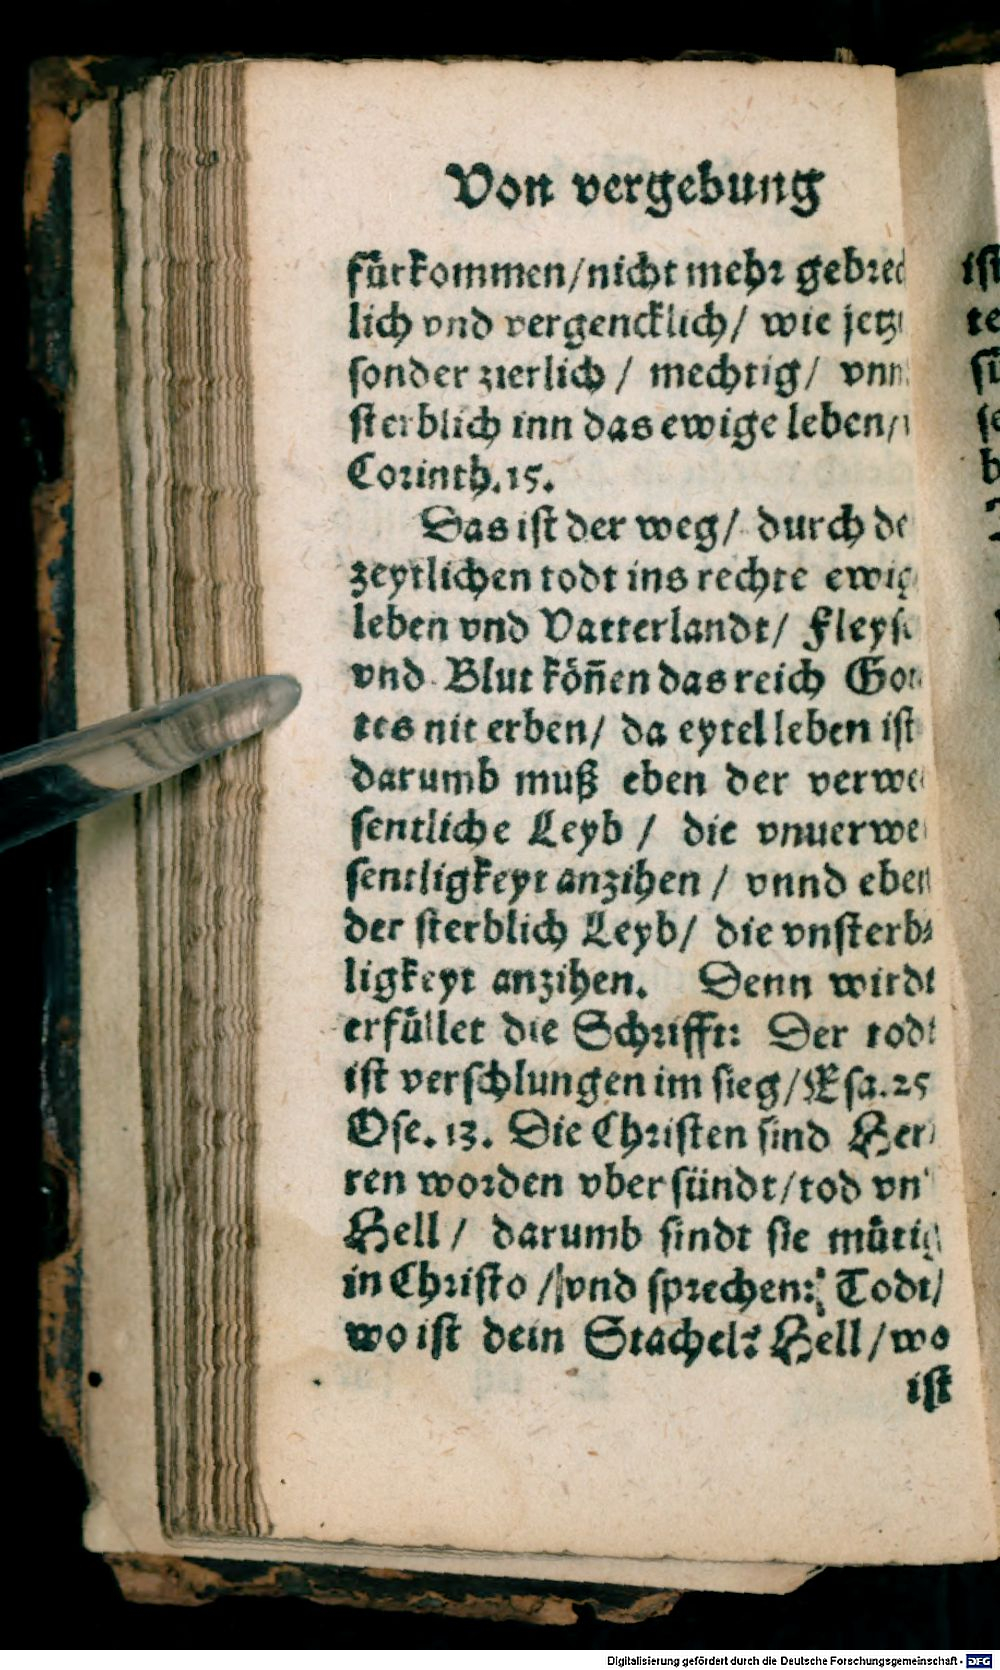 Von vergebung
fürkommen/nicht mehr gebrec
lich vnd vergencklich/ wie jetz
sonder zierlich / mechtig/ vnn
sterblich inn das ewige leben/
Corinth. 15.
Das ist der weg/ durch de
zeytlichen todt ins rechte ewig
leben vnd Vatterlandt/ Fleysc
vnd Blut köñen das reich Got
tes nit erben/ da eytel leben ist
darumb muß eben der verwe
sentliche Leyb / die vnuerwe
sentligkeyt anzihen / vnnd eben
der sterblich Leyb/ die vnsterb⸗
ligkeyt anzihen. Denn wirdt
erfüllet die Schrifft: Der todt
ist verschlungen im sieg/ Esa. 25
Ose. 13. Die Christen sind Her
ren worden vber sündt/tod vn
Hell / darumb sindt sie mütig
in Christo / vnd sprechen: Todt/
wo ist dein Stachel? Hell /wo
ist
Digitalisierung gefördert durch die Deutsche Forschungsgemeinschaft - DFG